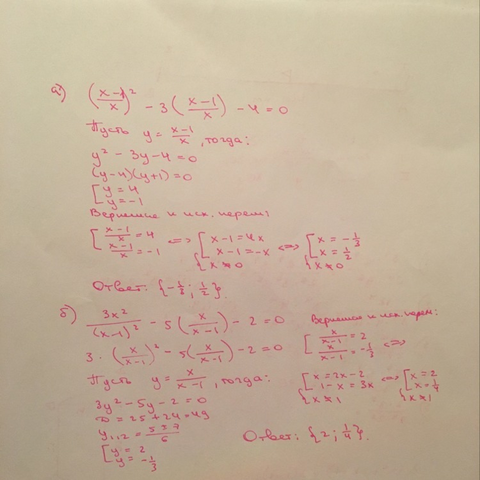 а) (x-1/x)² - 3(x-1/x) - 4 = 0
Пусть y = x-1/x, тогда:
y² - 3y - 4 = 0
(y-4)(y+1) = 0
[y = 4
y = -1
Вернёмся к исх. перем:
[x-1/x = 4
x-1/x = -1
<=> {[x-1 = 4x
x-1 = -x
x ≠ 0
<=> {[x = -1/3
x = 1/2
x ≠ 0
Ответ: {-1/3; 1/2}.
б) 3x²/(x-1)² - 5(x/x-1) - 2 = 0
3·(x/x-1)² - 5(x/x-1) - 2 = 0
Пусть y = x/x-1, тогда:
3y² - 5y - 2 = 0
D = 25 + 24 = 49
y₁,₂ = 5±7/6
[y = 2
y = -1/3
Вернёмся к исх. перем:
[x/x-1 = 2
x/x-1 = -1/3
<=>
{[x = 2x-2
1-x = 3x
x ≠ 1
<=> {[x = 2
x = 1/4
x ≠ 1
Ответ: {2; 1/4}.